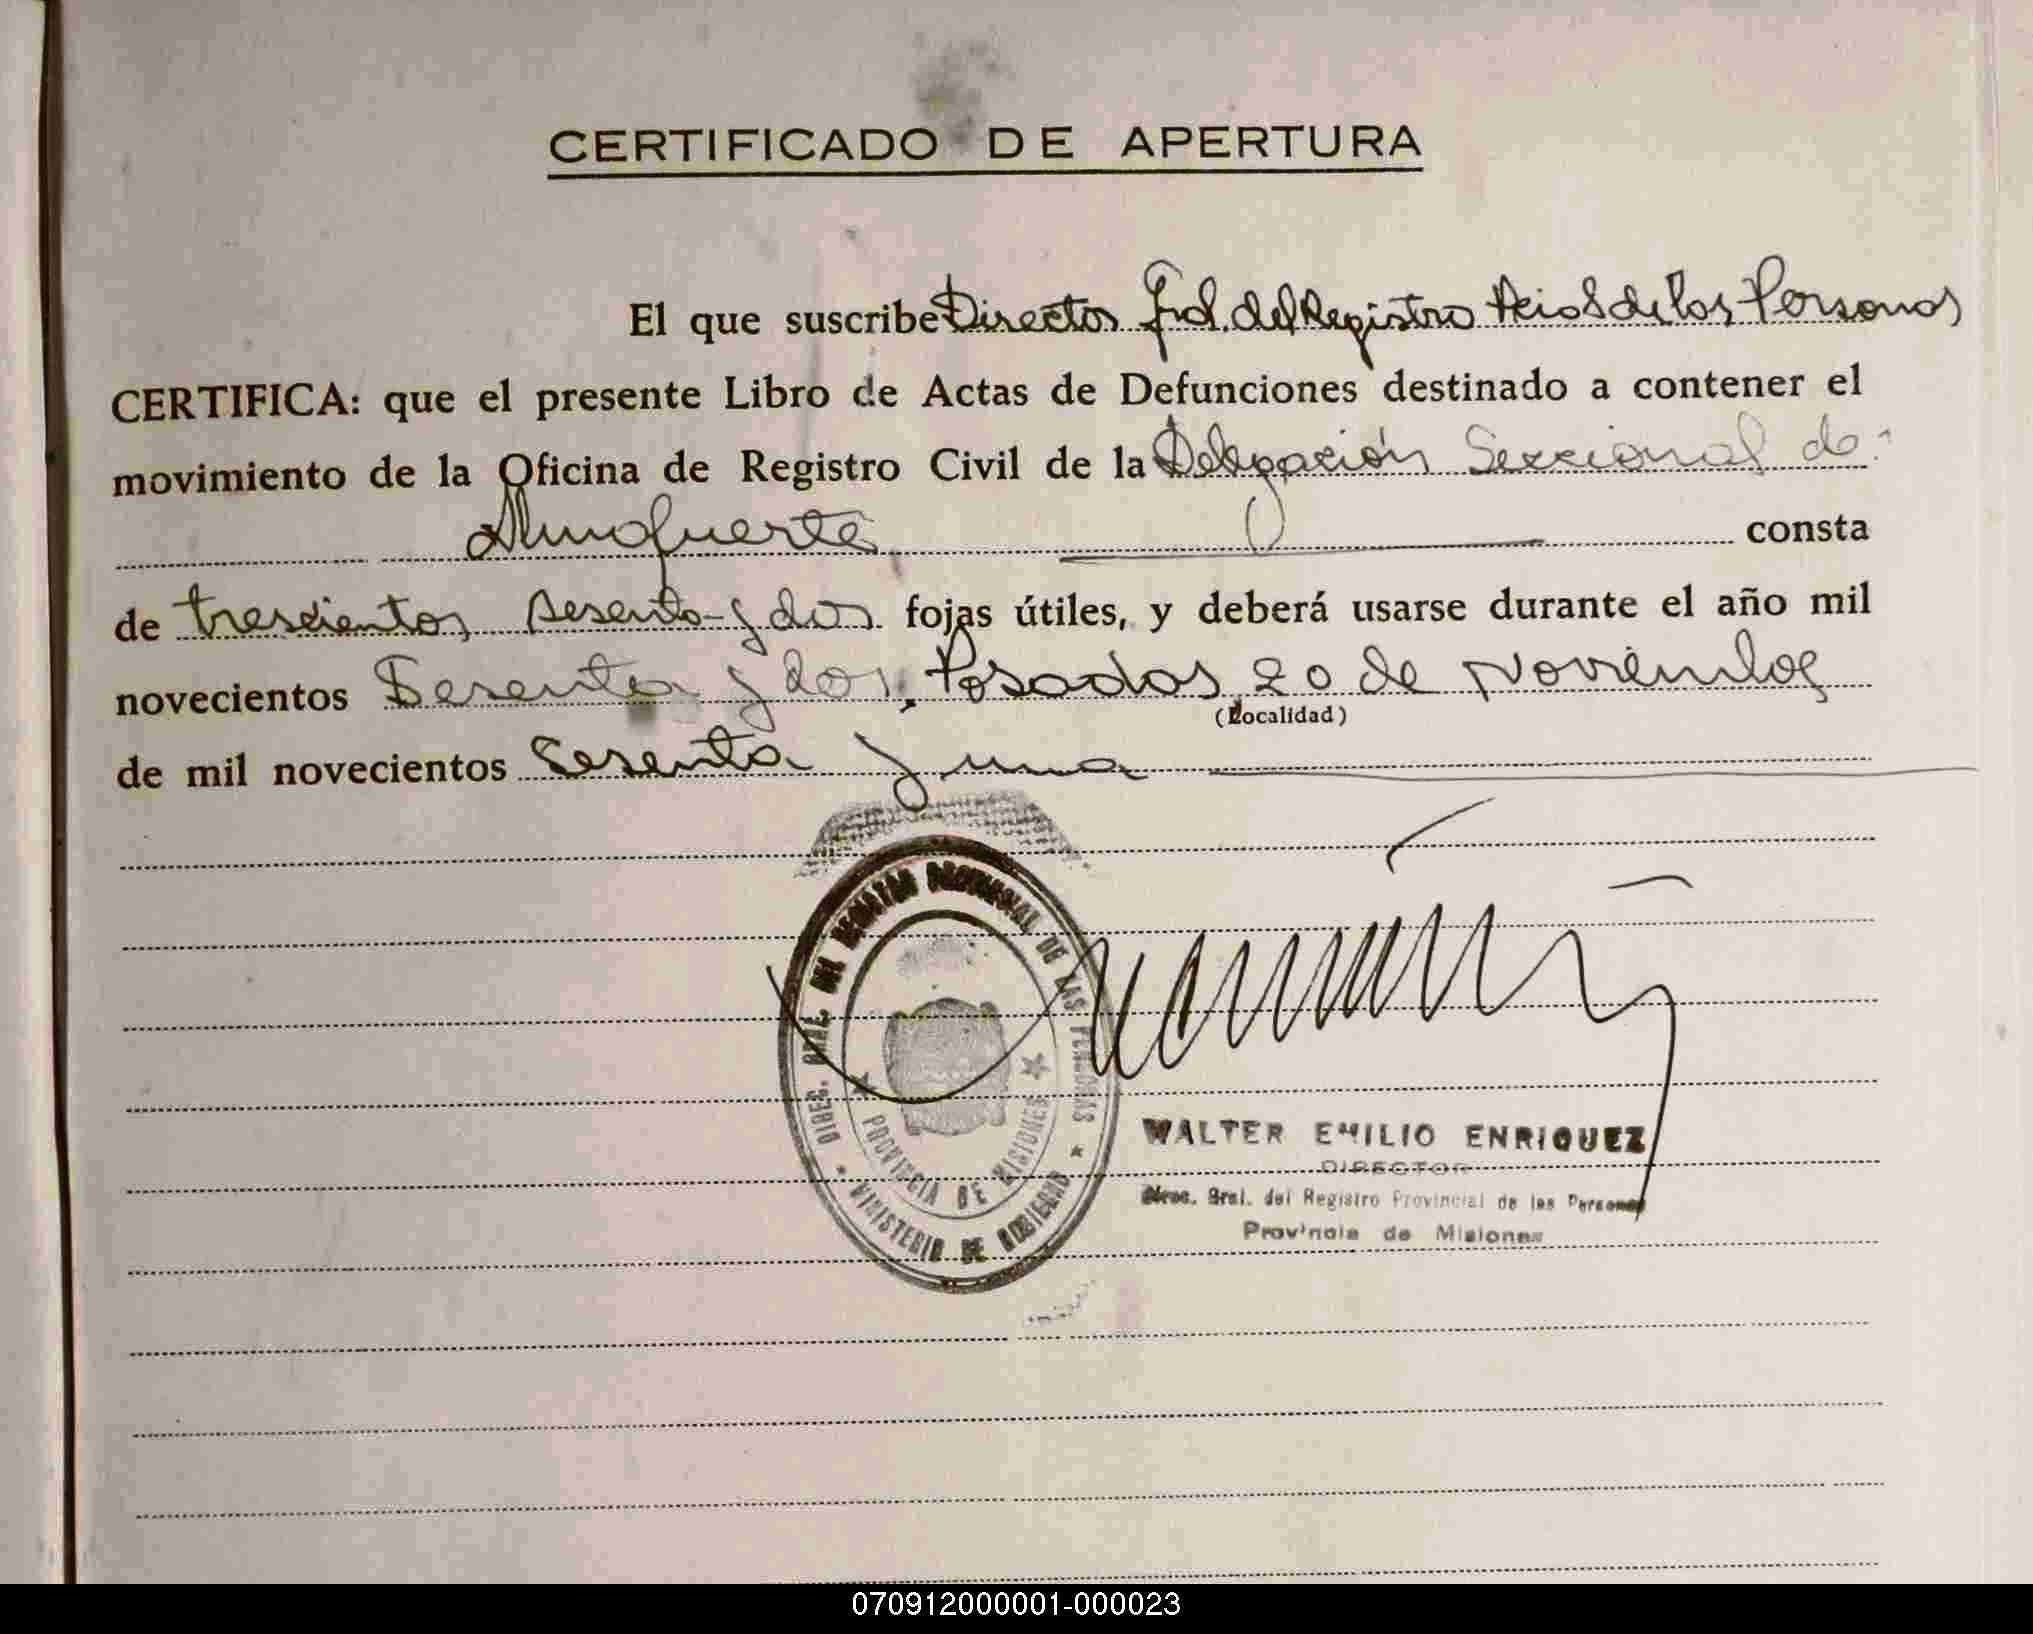 CERTIFICADO DE APERTURA
El que suscribe Director Gral. del Registro Pcial de las Personas
CERTIFICA: que el presente Libro de Actas de Defunciones destinado a contener el
movimiento de la Oficina de Registro Civil de la Delegación Seccional de
Almafuerte consta
de trescientos sesenta y dos fojas útiles, y deberá usarse durante el año mil
novecientos Sesenta y dos, Posadas, 20 de Noviembre
(Localidad)
de mil novecientos Sesenta y uno
DIREC. GRAL. DEL REGISTRO PROVINCIAL DE LAS PERSONAS
PROVINCIA DE MISIONES
MINISTERIO DE GOBIERNO
WALTER EMILIO ENRIQUEZ
DIRECTOR
Direc. Gral. del Registro Provincial de las Personas
Provincia de Misiones
070912000001-000023